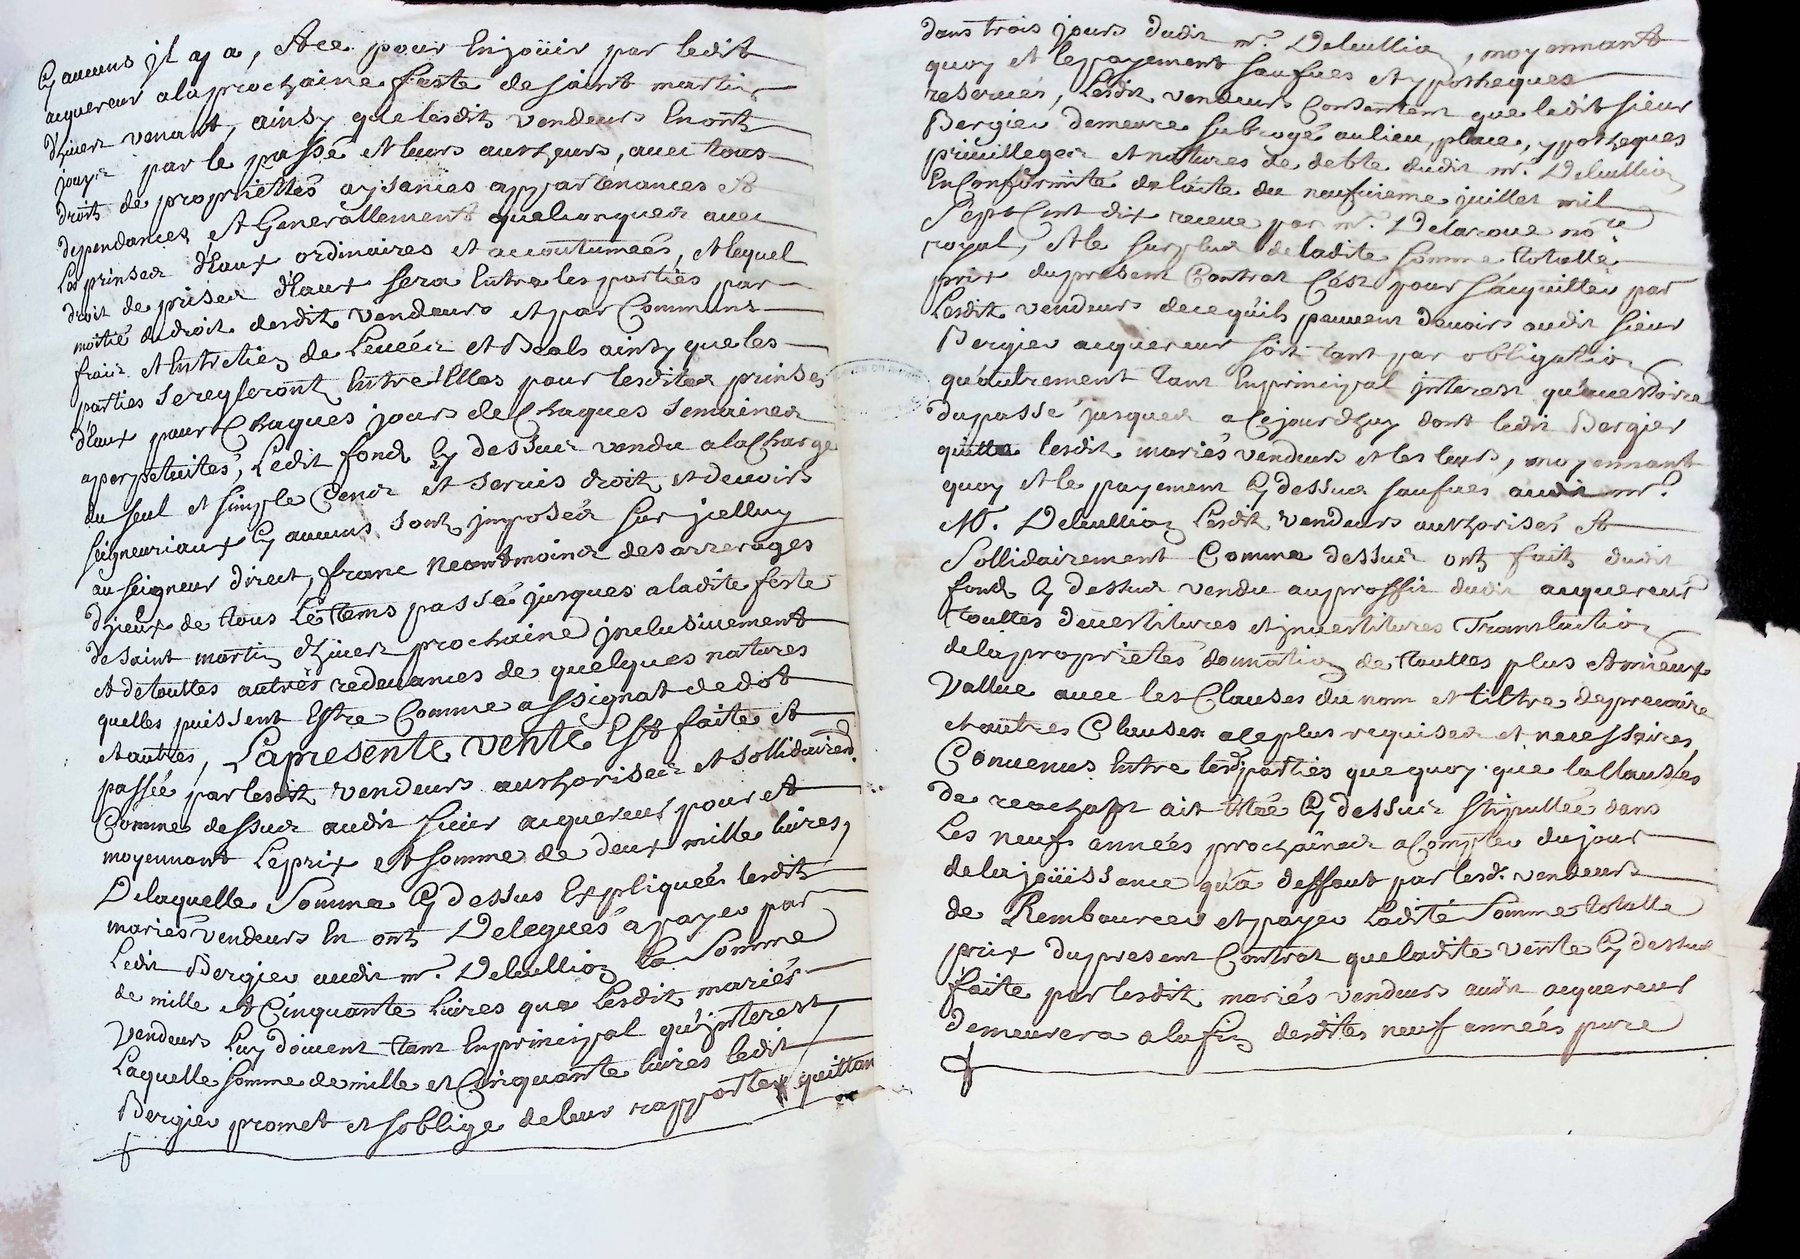 Cy aucuns jl y a, Et ce pour En joüir par ledit
acquereur a la prochaine feste de saint martin
d'hiver venant, ainsy que lesdits vendeurs En ont
jouy par le passé et leurs autheurs, avec tous
droits de propriettés aysances appartenances Et
dependances Et Generallement quelconques avec
Les prinses d'Eaux ordinaires et accoutumées, Et lequel
droit de prises d'Eaux sera Entre les parties par
moitié du droit desdits vendeurs et par Communs
frais Et Entretien de Levées et Beals ainsy que les
parties se regleront Entre Elles pour lesdites prinses
d'Eaux pour Chaques jours de Chaques semaines
a perpetuités, Ledit fond Cy dessus vendu a la Charge
du seul et simple Cens et servis droits et devoirs
seigneuriaux Cy aucuns sont jmposés sur jcelluy
au seigneur direct, franc neantmoins des arrerages
d'jceux de tous Le tems passé jusques a ladite feste
de saint martin d'hiver prochaine jnclusivement
Et de touttes autres redevances de quelques natures
quelles puissent Estre Comme assignat de dot
et autres, La presente vente Est faite et
passée par lesdits vendeurs authorisés et sollidairem.
Comme dessus audit sieur acquereur pour et
moyennant Le prix et somme de deux mille livres,
De laquelle Somme Cy dessus Expliquée lesdits
mariés vendeurs En ont Delegués a payer par
Ledit Bergier audit mr. Deleullion la Somme
de mille et Cinquante livres que Lesdits mariés
Vendeurs luy doivent tant En principal qu'jnterest
Laquelle somme de mille et Cinquante livres ledit
Bergier promet et s'oblige de leur rapporter quittan
dans trois jours dudit mr. Deleullion, moyennant
quoy et le payement saufues et ypotheques
reservés, Lesdits vendeurs Consentent que ledit sieur
Bergier demeure subrogé au lieu, place, ypotheques
privilleges et natures de debte dudit mr. Deleullion
En Conformité de l'acte du neufvieme juillet mil
Sept Cent dix receue par mr. Delaroue nore
royal, Et le surplus de ladite somme totalle
prix du present Contrat C'est pour s'acquitter par
Lesdits vendeurs de ce qu'ils peuvent devoirs audit sieur
Bergier acquereur soit tant par obligation
qu'autrement tant En principal jnterest qu'accessoire
du passé jusques a Cejourdhuy dont ledit Bergier
quitte lesdits mariés vendeurs et les leurs, moyennant
quoy et le payement Cy dessus saufués audit mr.
M. Deleullion Lesdits vendeurs authorisés Et
Sollidairement Comme dessus ont faits dudit
fond Cy dessus vendu au proffit dudit acquereur
touttes devestitures et jnvestitures Translation
de la proprietés donnation de touttes plus et mieux
Vallue avec les Clauses du nom et tiltre de precaire
et autres Clauses a ce plus requises et necessaires
Convenus Entre lesd. parties que quoy que la Clauses
de reachapt ait Ettée Cy dessus stipullée dans
Les neufs années prochaines a Compter du jour
de la joüissance qu'a deffaut par lesd. vendeurs
de Rembourcer et payer Ladite Somme totalle
prix du present Contrat que ladite vente Cy dessus
faite par lesdits mariés vendeurs audit acquereur
demeurera a la fin desdites neuf années pure